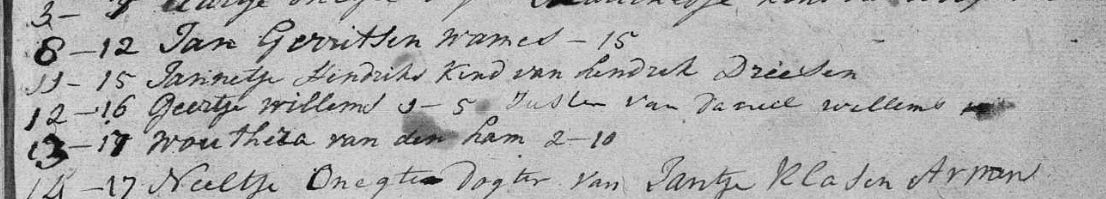 3-
8-12 Jan Gerritsen Wames - 15
11-15 Jannetje Hendriks Kind van hendrek Driesen
12-16 Geertje willems 9-5 Suster van Daniel willems
13-17 Wouthera van den ham 2-10
14-17 Neeltje Onegte Dogter van Jantje Klasen